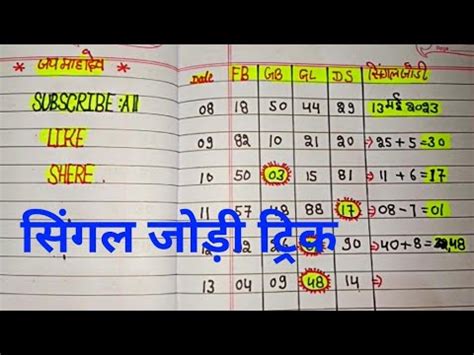 * जय माहादेव *
SUBSCRIBE :All
LIKE
SHERE
सिंगल जोड़ी ट्रिक
Date FB GB GL DS सिंगल जोडी
08 18 50 44 89 13 मई 2023
09 82 10 21 20 →25+5=30
10 50 03 15 81 →11+6=17
11 57 88 17 →08-7=01
12 90 →40+8= 48
13 04 09 48 14 →